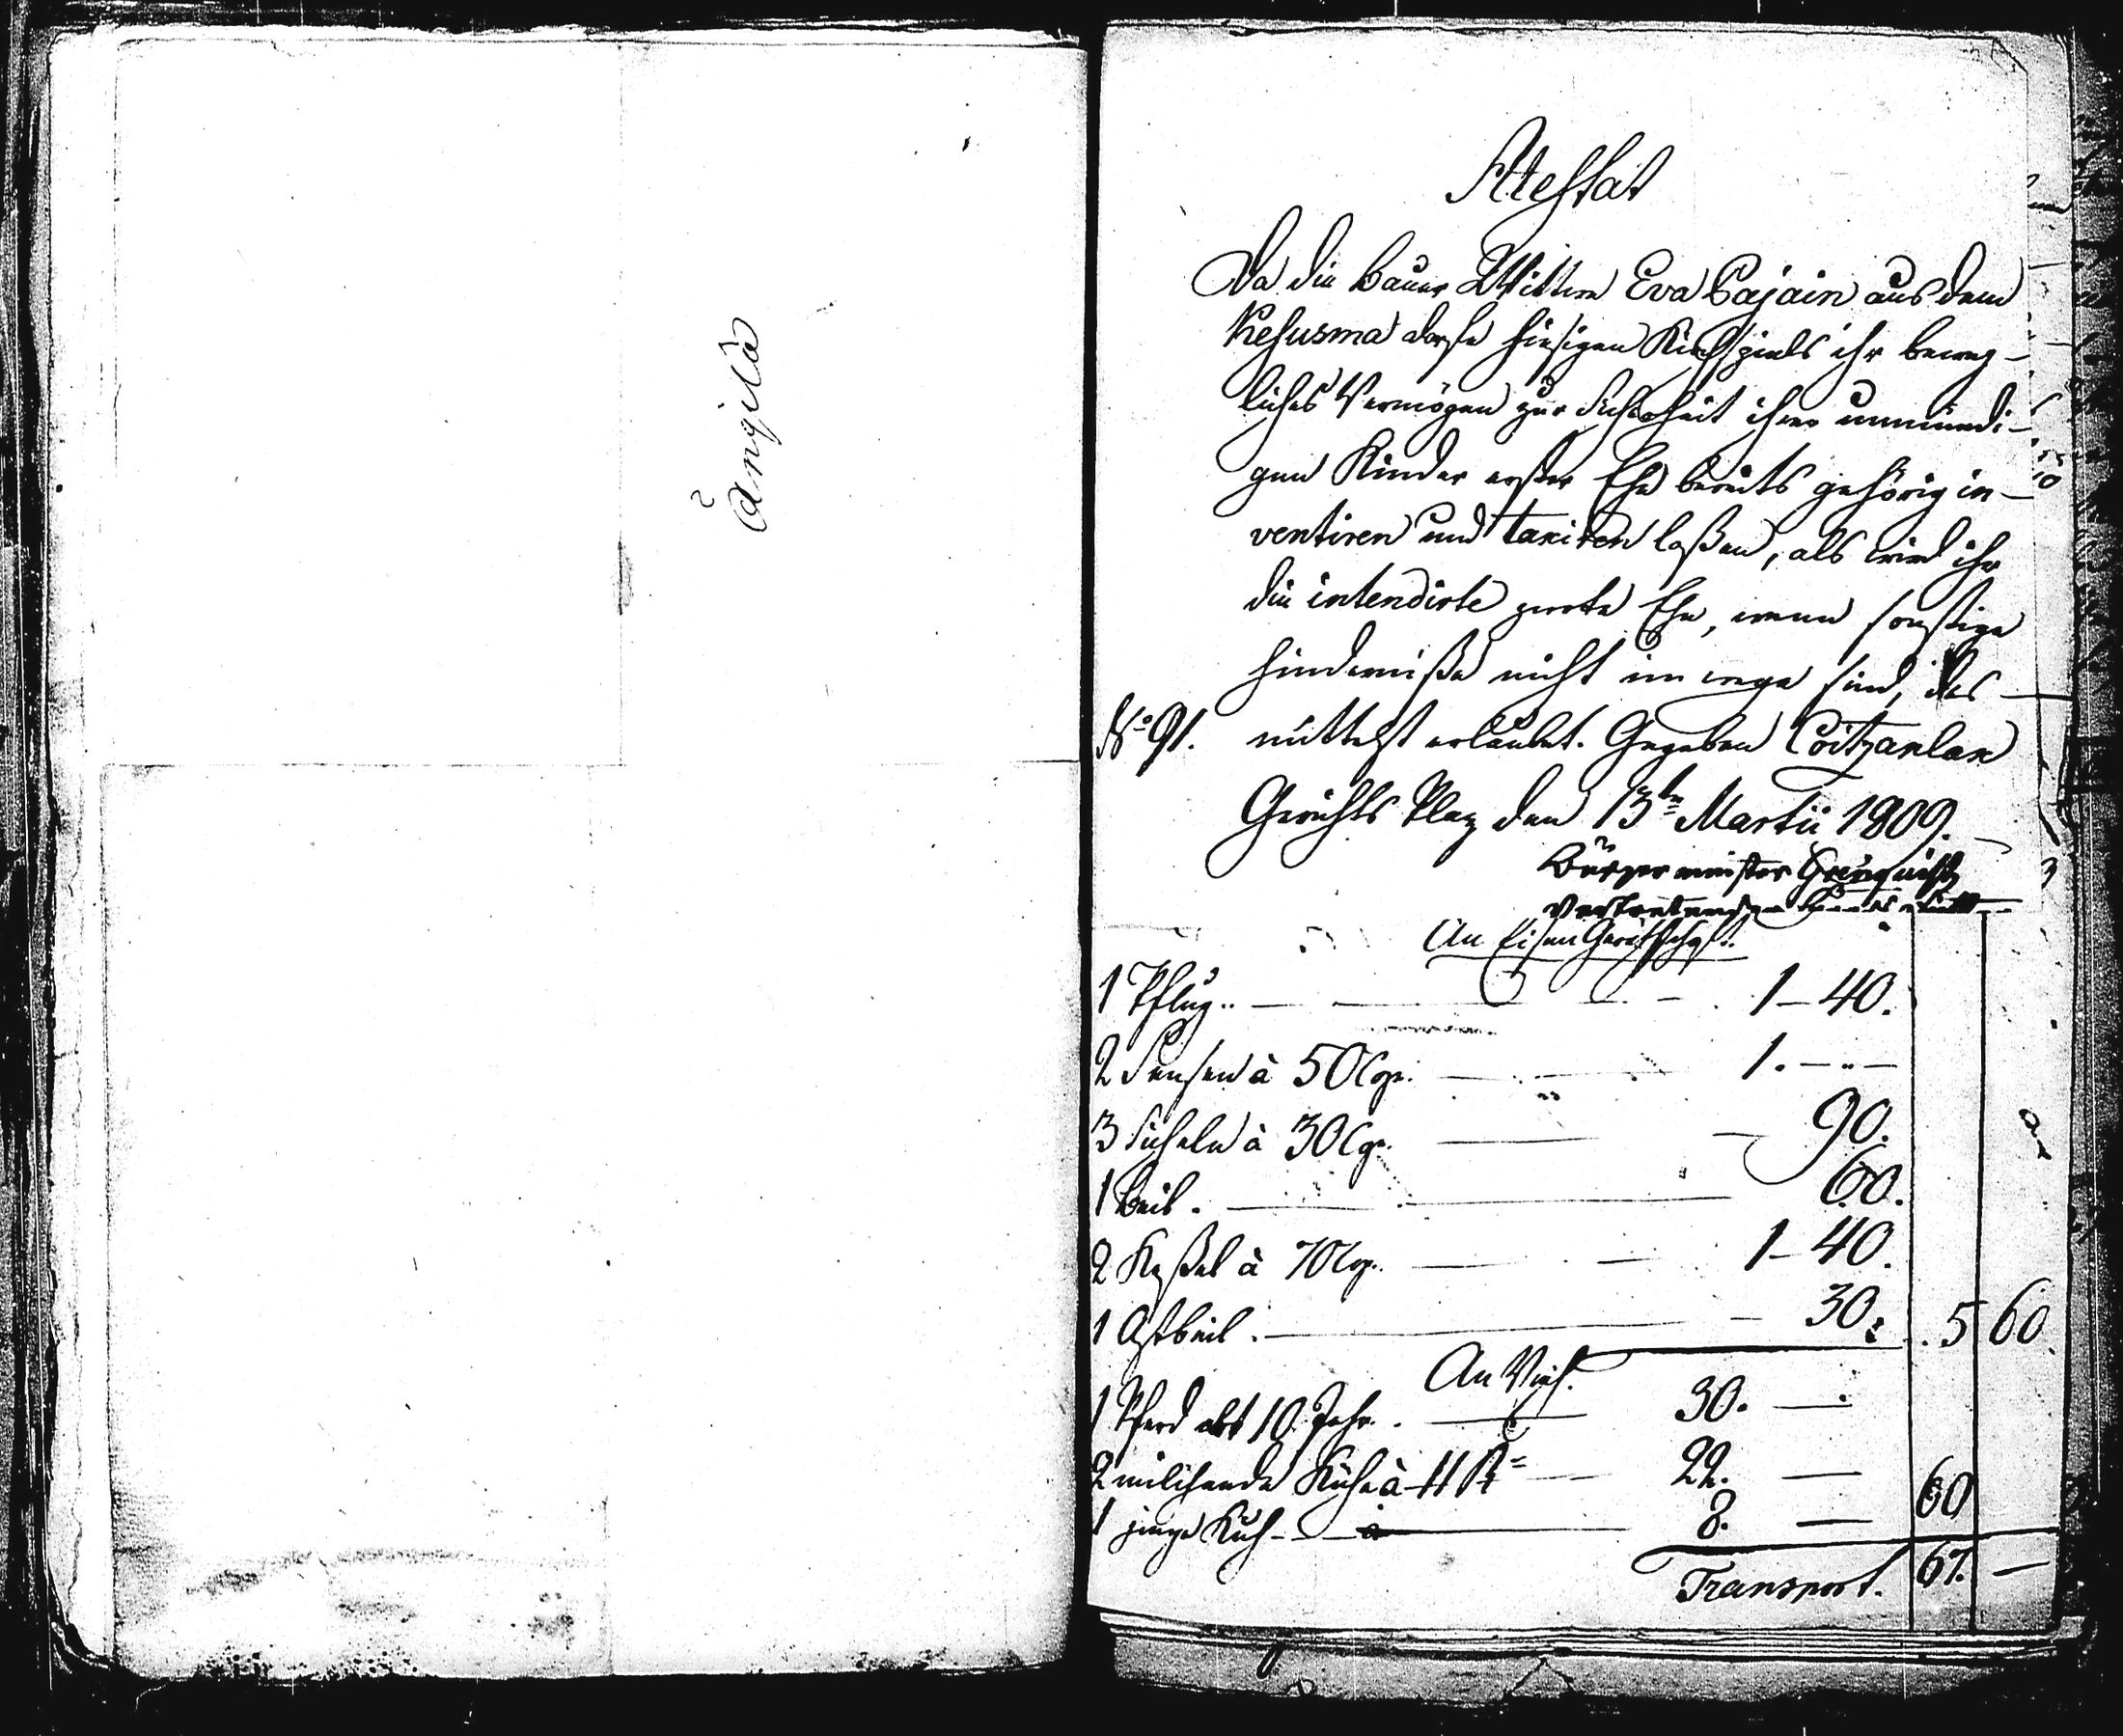 Ängilä
Attestat
Da die Bauer Wittwe Eva Pajain aus dem
Kesusma dorfe hiesigen Kirchspiels ihr beweg-
liches Vermögen zur Sicherheit ihrer unmündi-
gen Kinder erster Ehe bereits gehörig in-
ventiren und taxiren laßen, als wird ihr
die intendirte zwote Ehe, wenn sonstige
Hinderniße nicht im wege sind, des-
No 91. mittelst erlaubet. Gegeben
Gerichts Platz den 13ten Martii 1809.
Bürgermeister
Vertretender
An Eisen Geräthschaft.
1 Pflug.. 1-40.
2 Sensen à 50 Cop. 1.-..-
3 Sicheln à 30 Cp. 90.
1 Beil. 60.
2 Keßel à 70 Cop. 1-40.
1 Astbeil. 30. 5 60.
An Vieh.
1 Pferd alt 10 Jahr. 30. —
2 milchende Kühe à 11 R 22. —
1 junge Kuh - à 8. — 60
Transport. 67. —